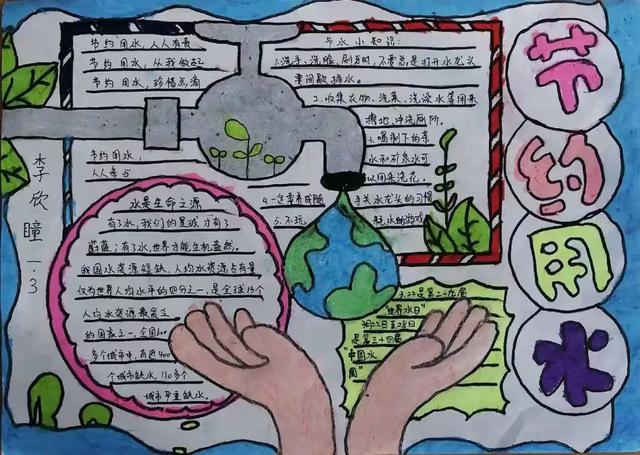 节约用水
李欣瞳 一.3
节约用水，人人有责
节约用水，从我做起
节约用水，珍惜点滴
节约用水
人人参与
节水小知识：
1.洗手、洗脸、刷牙时，不要总是打开水龙头
要间歇排水。
2.收集衣物、洗菜、洗澡水等用来
擦地，冲洗厕所。
3.喝剩下的茶
水和矿泉水可
以用来浇花。
4.一定要养成随手关水龙头的习惯
5.不玩耗水的游戏
水是生命之源
有了水，我们的星球才有了
蔚蓝；有了水，世界才能生机盎然。
我国水资源短缺，人均水资源占有量
仅为世界人均水平的四分之一，是全球13个
人均水资源最贫乏
的国家之一，全国600
多个城市中，有近400
个城市缺水，110多个
城市严重缺水。
3.22是第二十九届
"世界水日"
3月22日至28日
是第三十四届
"中国水
周"